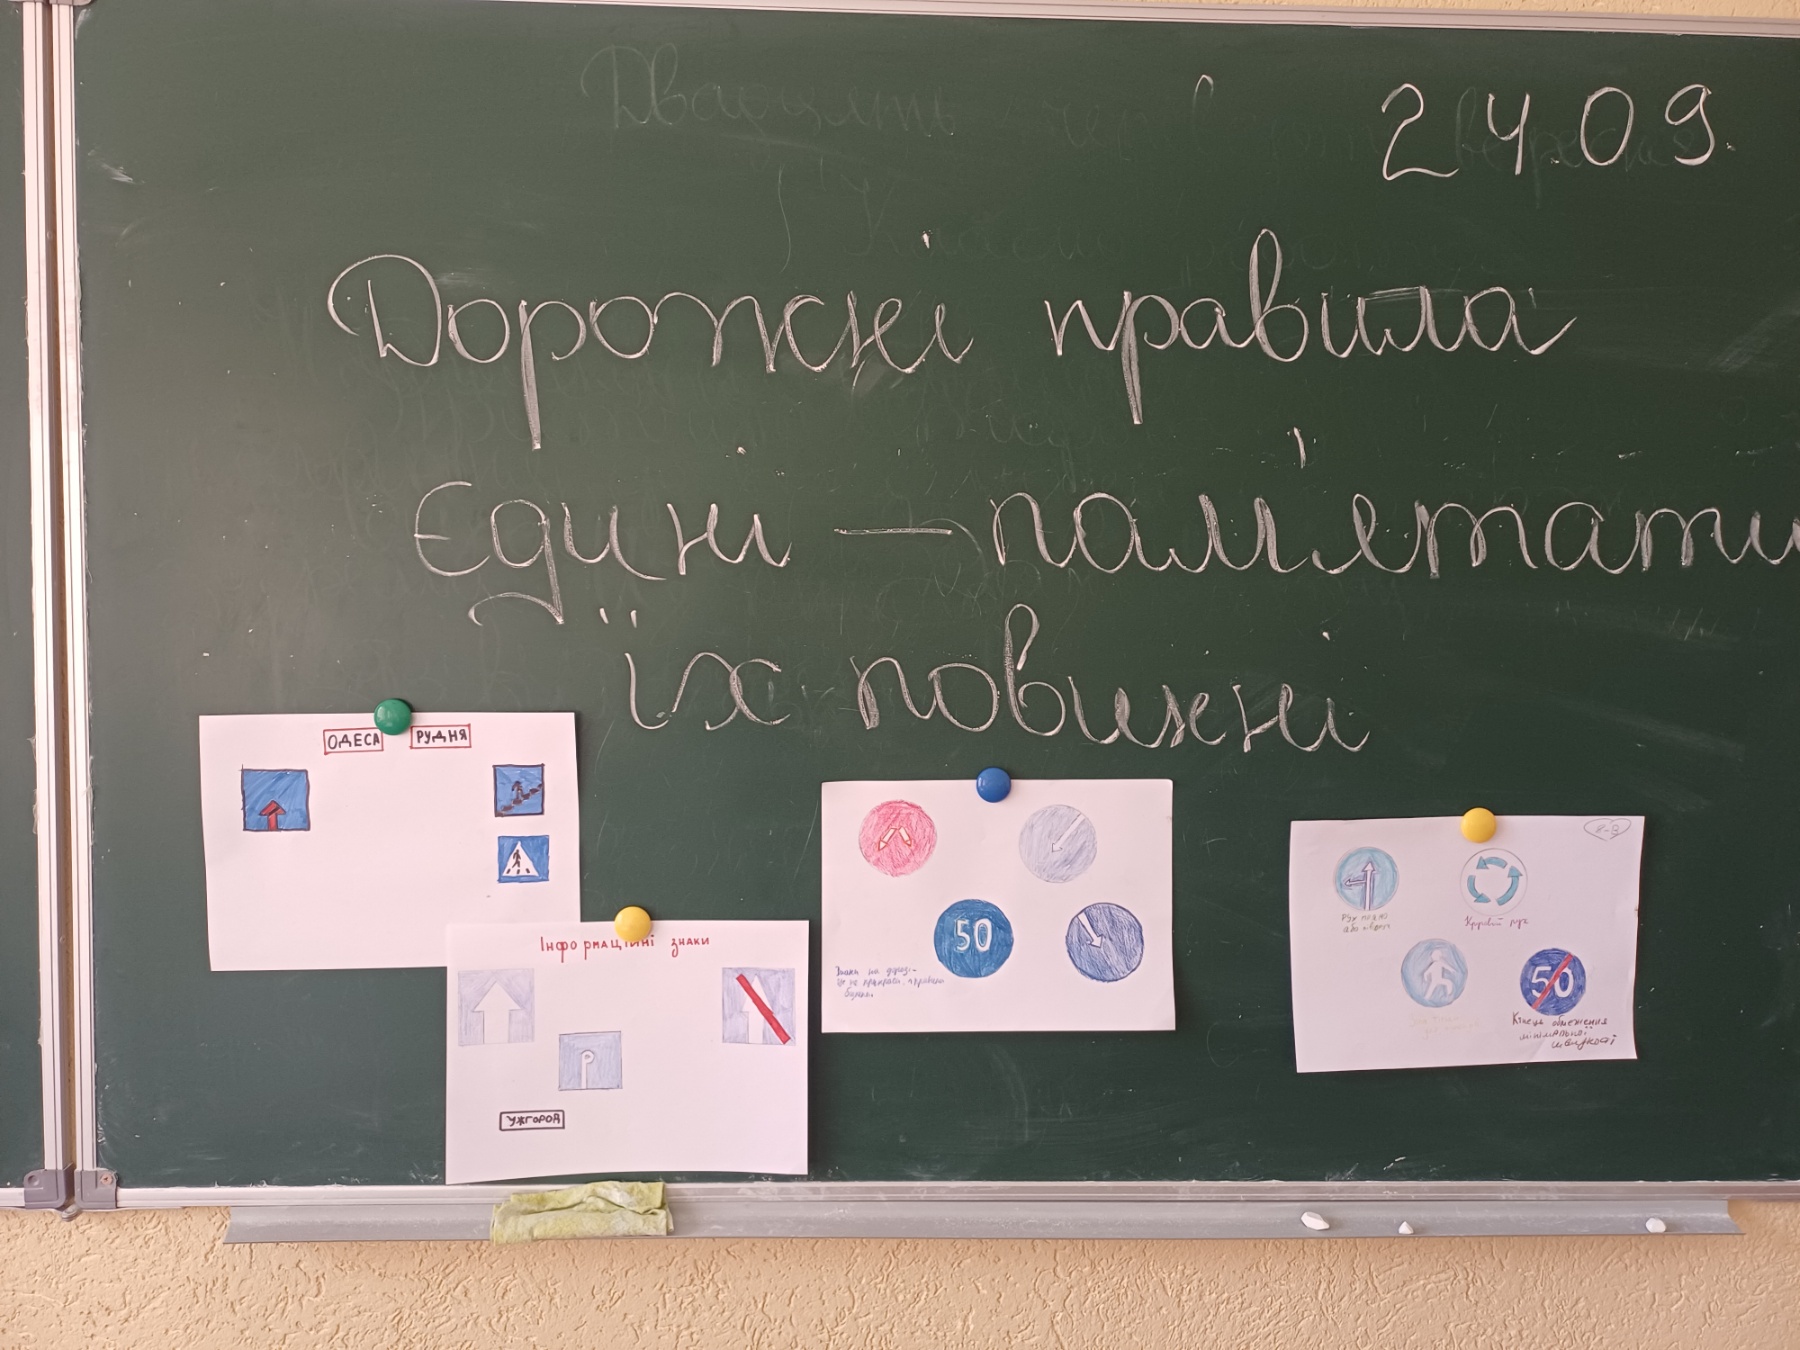 24.09.
Дорожні правила
Єдині — пам'ятати
їх повинні
ОДЕСА РУДНЯ
Інформаційні знаки
Р
УЖГОРОД
50
Знаки на дорозі -
це не прикраси, а правила
безпеки
8-В
Рух прямо
або ліворуч
Круговий рух
50
Кінець обмеження
мінімальної
швидкості